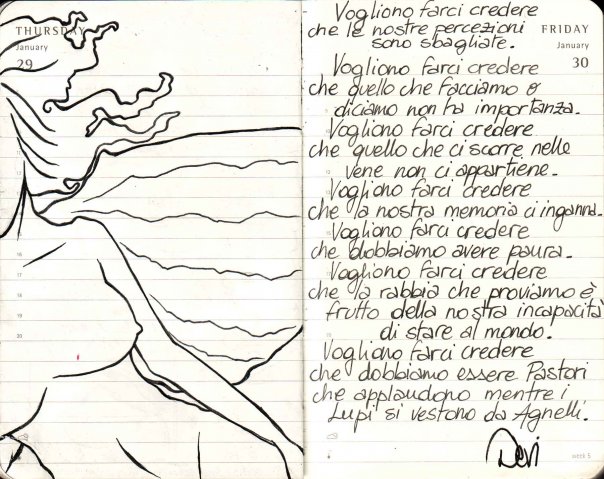 THURSDAY
January
29
FRIDAY
January
30
Vogliono farci credere
che le nostre percezioni
sono sbagliate.
Vogliono farci credere
che quello che facciamo o
diciamo non ha importanza.
Vogliono farci credere
che quello che ci scorre nelle
vene non ci appartiene.
Vogliono farci credere
che la nostra memoria ci inganna.
Vogliono farci credere
che dobbiamo avere paura.
Vogliono farci credere
che la rabbia che proviamo è
frutto della nostra incapacità
di stare al mondo.
Vogliono farci credere
che dobbiamo essere Pastori
che applaudono mentre i
Lupi si vestono da Agnelli.
Devi
week 5